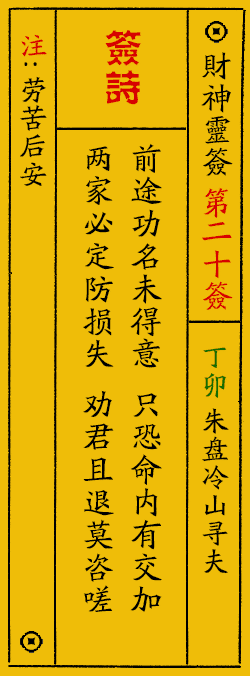 財神靈簽 第二十簽
丁卯 朱盘冷山寻夫
簽詩
前途功名未得意 只恐命内有交加
两家必定防损失 劝君且退莫咨嗟
注:劳苦后安